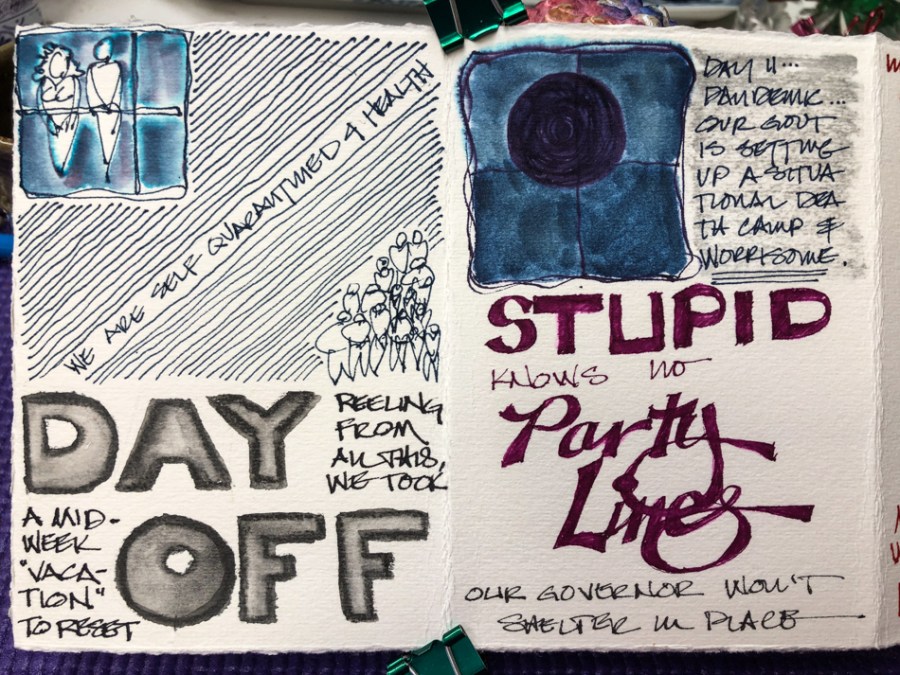 WE ARE SELF QUARANTINED & HEALTH
DAY
OFF
REELING
FROM
ALL THIS,
WE TOOK
A MID-
WEEK
"VACA-
TION"
TO RESET
DAY 11...
PANDEMIC...
OUR GOVT
IS SETTING
UP A SITUA-
TIONAL DEA
TH CAMP &
WORRISOME.
STUPID
KNOWS NO
Party
Lines
OUR GOVERNOR WON'T
SHELTER IN PLACE